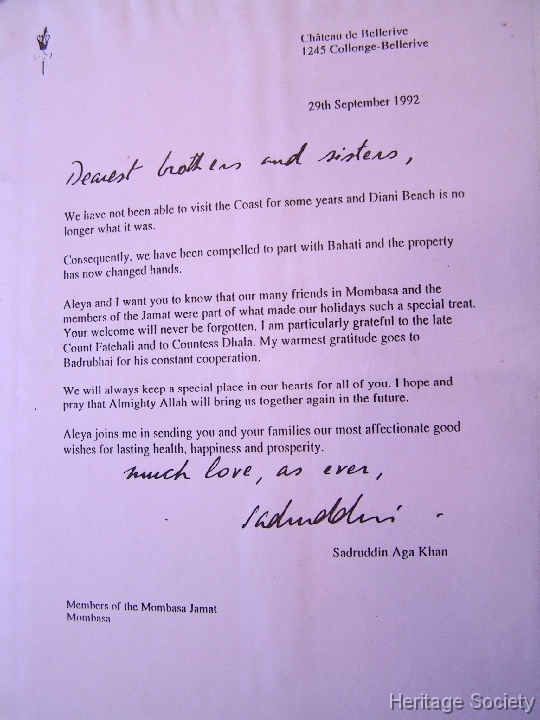 Château de Bellerive
1245 Collonge-Bellerive
29th September 1992
Dearest brothers and sisters,
We have not been able to visit the Coast for some years and Diani Beach is no
longer what it was.
Consequently, we have been compelled to part with Bahati and the property
has now changed hands.
Aleya and I want you to know that our many friends in Mombasa and the
members of the Jamat were part of what made our holidays such a special treat.
Your welcome will never be forgotten. I am particularly grateful to the late
Count Fatehali and to Countess Dhala. My warmest gratitude goes to
Badrubhai for his constant cooperation.
We will always keep a special place in our hearts for all of you. I hope and
pray that Almighty Allah will bring us together again in the future.
Aleya joins me in sending you and your families our most affectionate good
wishes for lasting health, happiness and prosperity.
much love, as ever,
Sadruddin
Sadruddin Aga Khan
Members of the Mombasa Jamat
Mombasa
Heritage Society